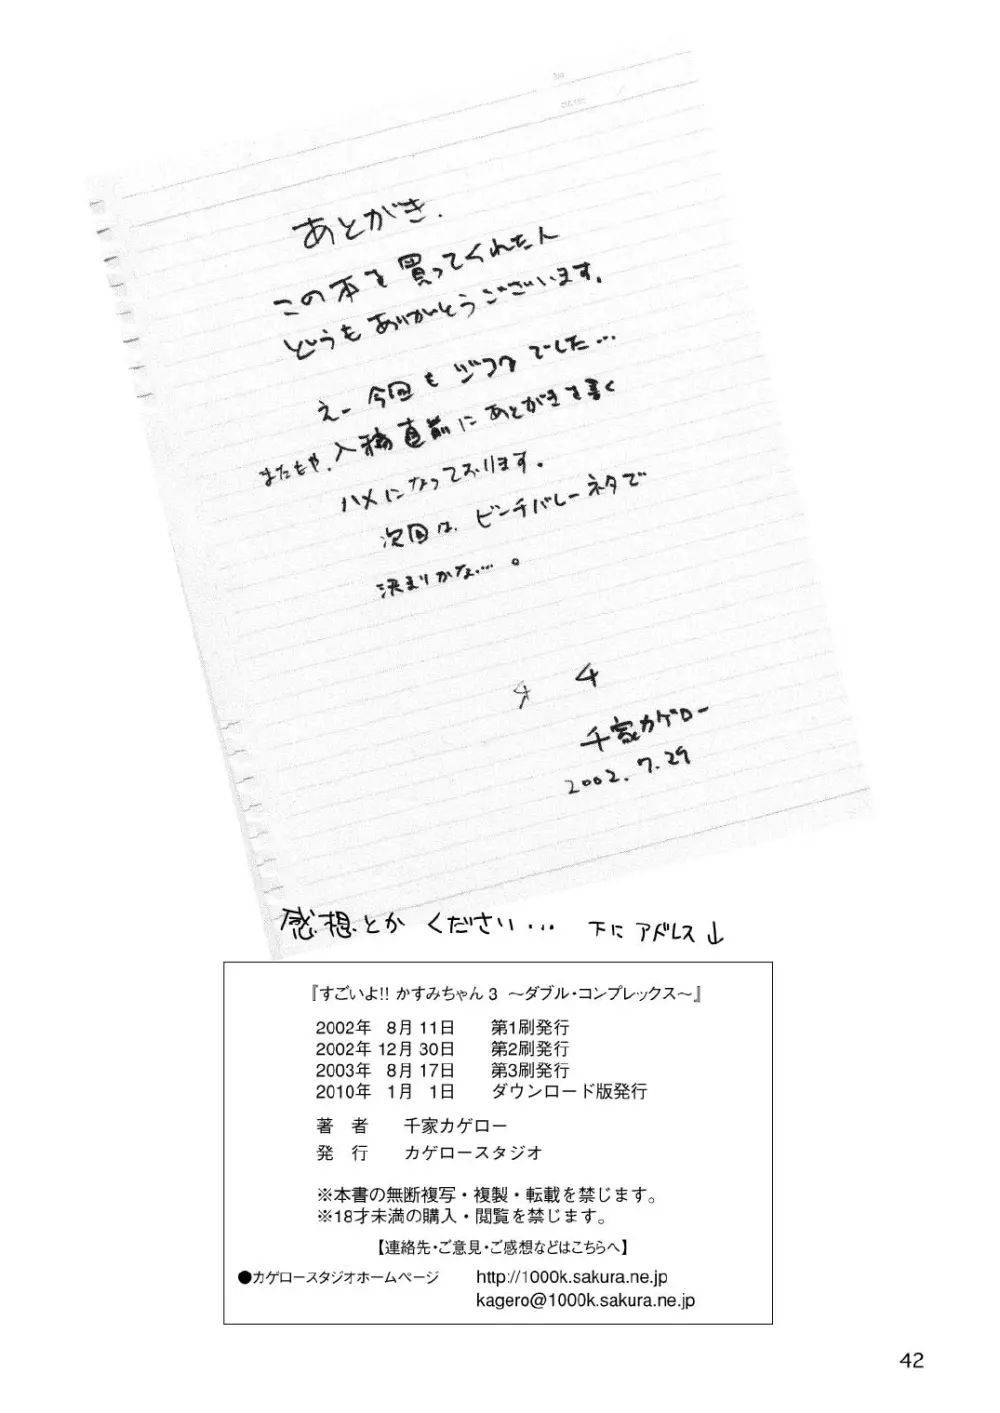 あとがき.
この本を買ってくれた人
どうもありがとうございます.
えー今回もジコクでした…
またもや、入稿直前にあとがきを書く
ハメになっております.
次回は、ピンチバレーネタで
決まりかな…。
千家カゲロー
2002.7.29
感想とかください… 下にアドレス↓
『すごいよ!! かすみちゃん 3 ～ダブル・コンプレックス～』
2002年 8月 11日 第1刷発行
2002年 12月 30日 第2刷発行
2003年 8月 17日 第3刷発行
2010年 1月 1日 ダウンロード版発行
著 者 千家カゲロー
発 行 カゲロースタジオ
※本書の無断複写・複製・転載を禁じます。
※18才未満の購入・閲覧を禁じます。
【連絡先・ご意見・ご感想などはこちらへ】
●カゲロースタジオホームページ http://1000k.sakura.ne.jp
kagero@1000k.sakura.ne.jp
42